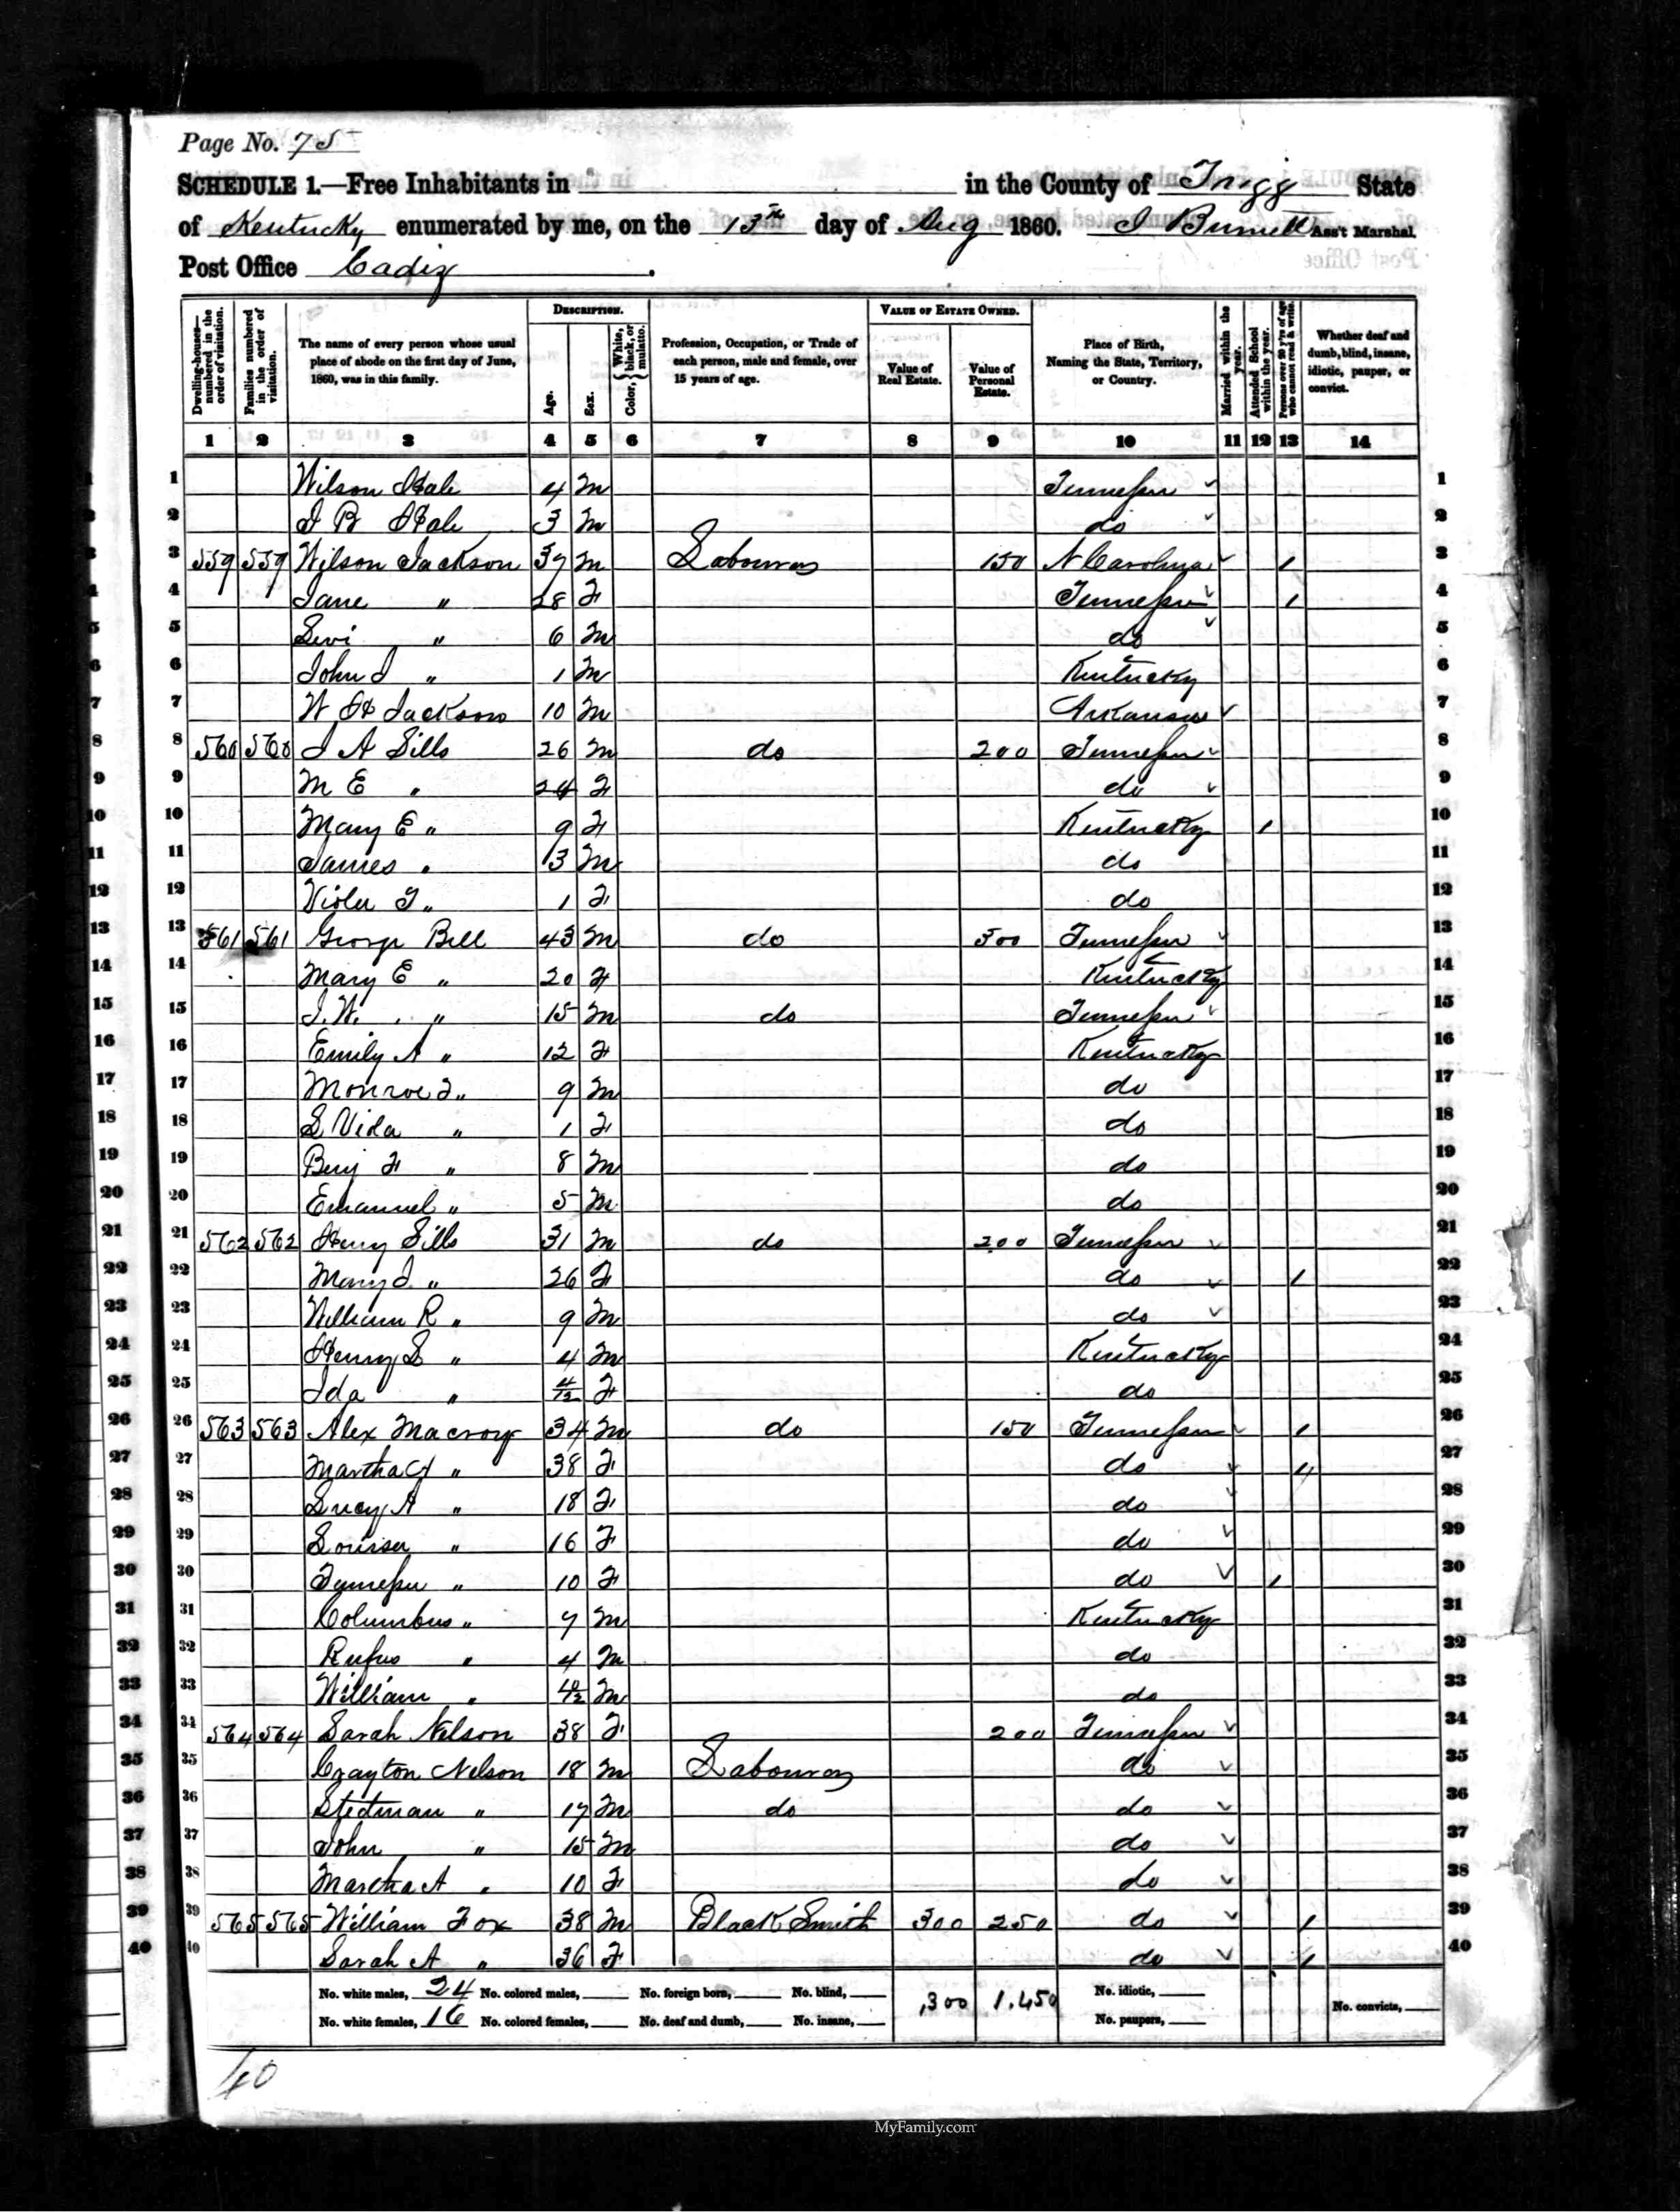 Page No. 75
SCHEDULE 1.—Free Inhabitants in in the County of Trigg State
of Kentucky enumerated by me, on the 13th day of Aug 1860. Ass't Marshal.
Post Office Cadiz
Dwelling-houses—numbered in the order of visitation.
Families numbered in the order of visitation.
The name of every person whose usual place of abode on the first day of June, 1860, was in this family.
DESCRIPTION.
Age.
Sex.
Color, White, black, or mulatto.
Profession, Occupation, or Trade of each person, male and female, over 15 years of age.
VALUE OF ESTATE OWNED.
Value of Real Estate.
Value of Personal Estate.
Place of Birth, Naming the State, Territory, or Country.
Married within the year.
Attended School within the year.
Persons over 20 y'rs of age who cannot read & write.
Whether deaf and dumb, blind, insane, idiotic, pauper, or convict.
1 2 3 4 5 6 7 8 9 10 11 12 13 14
1 Wilson Hale 4 M Tennessee 1
2 J B Hale 3 M do 2
3 559 559 Wilson Jackson 37 M Labourer 150 N Carolina / 3
4 Jane " 28 F Tennessee / 4
5 Levi " 6 M do 5
6 John J " 1 M Kentucky 6
7 W H Jackson 10 M Arkansas 7
8 560 560 J A Sills 26 M do 200 Tennessee 8
9 M E " 24 F do 9
10 Mary E " 9 F Kentucky / 10
11 James " 3 M do 11
12 Viola F " 1 F do 12
13 561 561 George Bell 43 M do 300 Tennessee 13
14 Mary E " 20 F Kentucky 14
15 J. W. " 15 M do Tennessee 15
16 Emily A " 12 F Kentucky 16
17 Monroe " 9 M do 17
18 S Vida " 1 F do 18
19 Benj F " 8 M do 19
20 Emanuel " 5 M do 20
21 562 562 Henry Sills 31 M do 200 Tennessee 21
22 Mary J " 26 F do / 22
23 William R " 9 M do 23
24 Henry S " 4 M Kentucky 24
25 Ida " 4/12 F do 25
26 563 563 Alex Macroy 34 M do 150 Tennessee / 26
27 Martha " 38 F do / 27
28 Lucy A " 18 F do 28
29 Louisa " 16 F do 29
30 Tennessee " 10 F do / 30
31 Columbus " 7 M Kentucky 31
32 Rufus " 4 M do 32
33 William " M do 33
34 564 564 Sarah Nelson 38 F 200 Tennessee 34
35 Nelson 18 M Labourer do 35
36 Stedman " 17 M do do 36
37 John " 15 M do 37
38 Martha A " 10 F do 38
39 565 565 William Fox 38 M Black Smith 300 250 do / 39
40 Sarah A " 36 F do / 40
No. white males, 24 No. colored males, No. foreign born, No. blind, 300 1,450 No. idiotic,
No. white females, 16 No. colored females, No. deaf and dumb, No. insane, No. paupers, No. convicts,
40
MyFamily.com